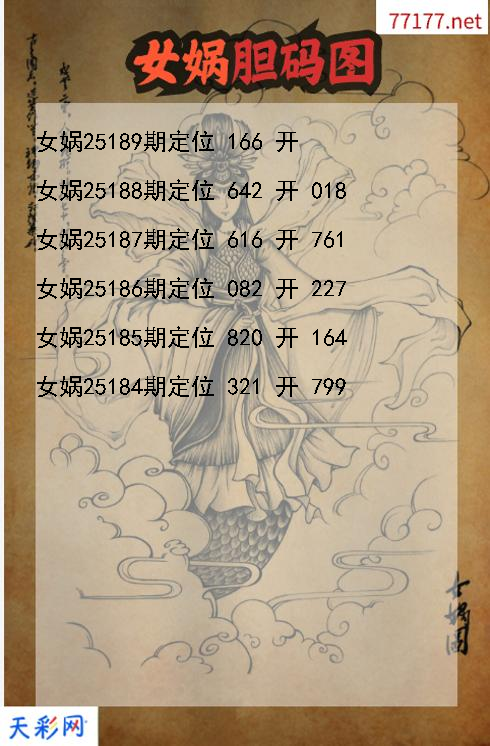 77177.net
女娲胆码图
女娲25189期定位 166 开
女娲25188期定位 642 开 018
女娲25187期定位 616 开 761
女娲25186期定位 082 开 227
女娲25185期定位 820 开 164
女娲25184期定位 321 开 799
女娲图
天彩网